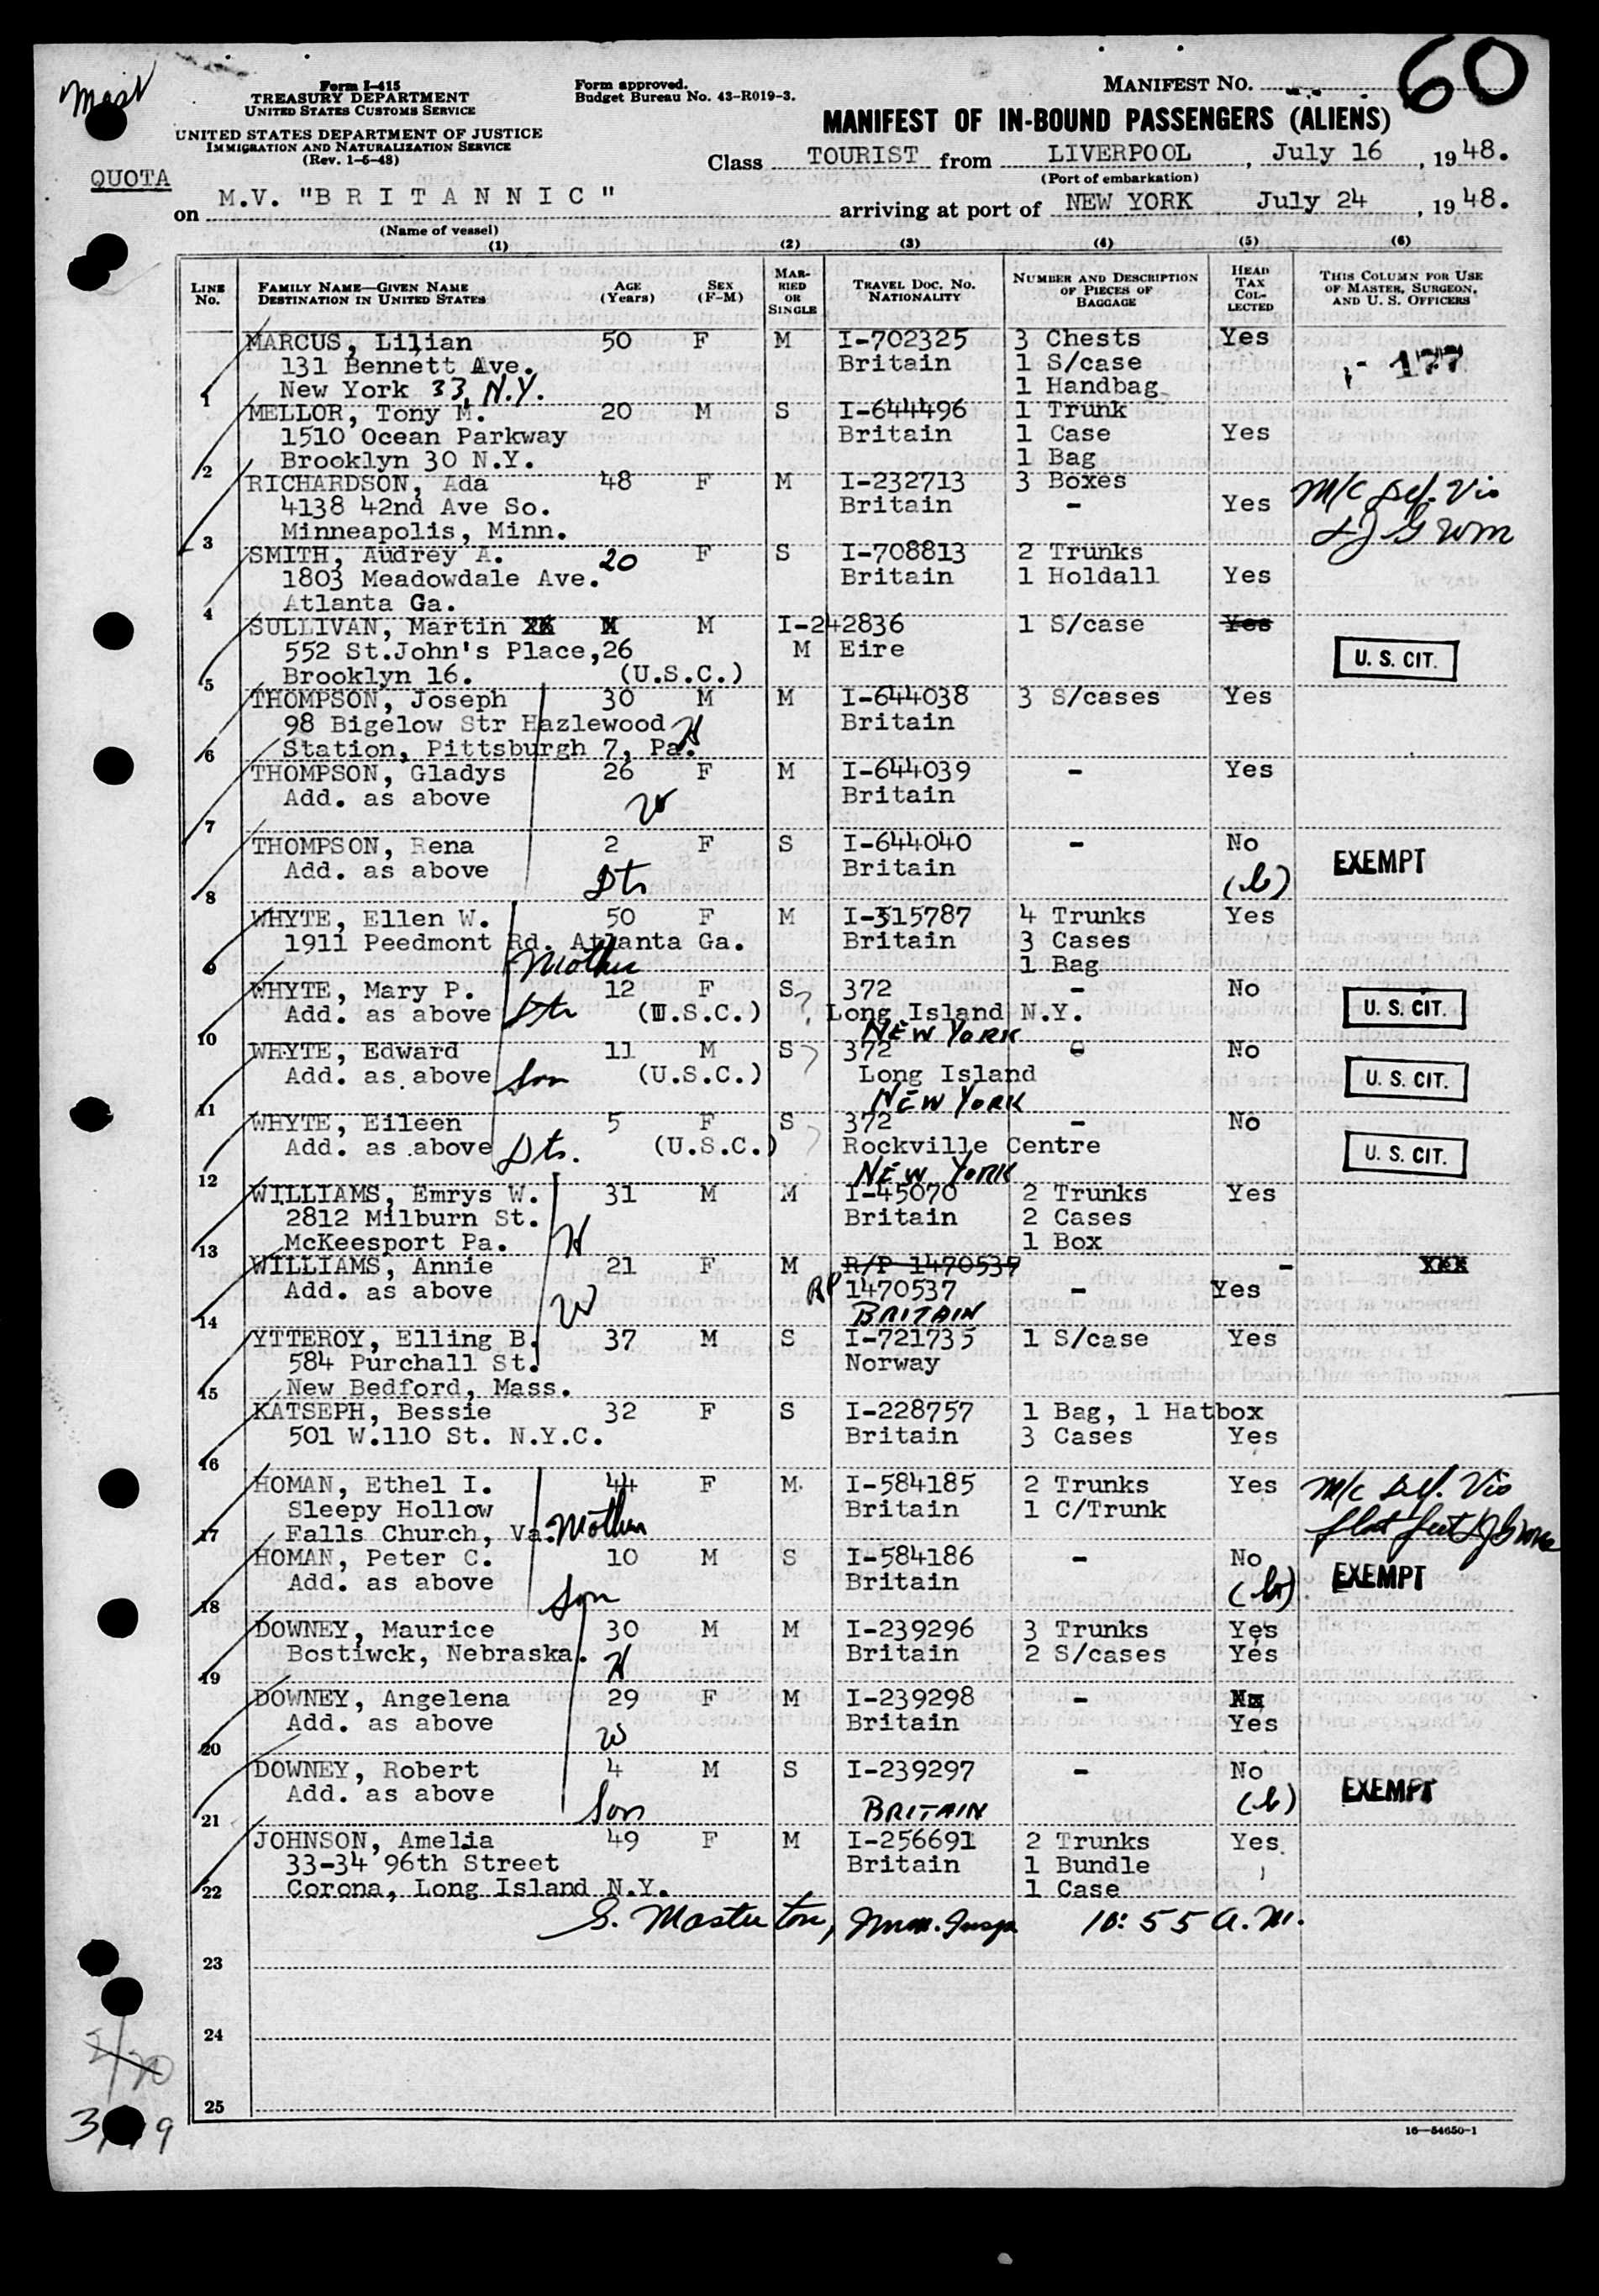 Form I-415
TREASURY DEPARTMENT
UNITED STATES CUSTOMS SERVICE
UNITED STATES DEPARTMENT OF JUSTICE
IMMIGRATION AND NATURALIZATION SERVICE
(Rev. 1-6-48)
Form approved.
Budget Bureau No. 43-R019-3.
MANIFEST NO. 60
MANIFEST OF IN-BOUND PASSENGERS (ALIENS)
Class TOURIST from LIVERPOOL, July 16, 1948.
(Port of embarkation)
QUOTA
on M.V. "BRITANNIC" arriving at port of NEW YORK July 24, 1948.
(Name of vessel)
(1) (2) (3) (4) (5) (6)
LINE No. FAMILY NAME—GIVEN NAME DESTINATION IN UNITED STATES AGE (Years) SEX (F-M) MARRIED OR SINGLE TRAVEL DOC. NO. NATIONALITY NUMBER AND DESCRIPTION OF PIECES OF BAGGAGE HEAD TAX COLLECTED THIS COLUMN FOR USE OF MASTER, SURGEON, AND U. S. OFFICERS
MARCUS, Lilian 50 F M I-702325 3 Chests Yes
131 Bennett Ave. Britain 1 S/case 177
1 New York 33, N.Y. 1 Handbag
MELLOR, Tony M. 20 M S I-644496 1 Trunk
1510 Ocean Parkway Britain 1 Case Yes
2 Brooklyn 30 N.Y. 1 Bag
RICHARDSON, Ada 48 F M I-232713 3 Boxes M/C Def. Vis
4138 42nd Ave So. Britain - Yes
3 Minneapolis, Minn.
SMITH, Audrey A. 20 F S I-708813 2 Trunks
1803 Meadowdale Ave. Britain 1 Holdall Yes
4 Atlanta Ga.
SULLIVAN, Martin M I-242836 1 S/case Yes
552 St.John's Place, 26 M Eire U. S. CIT.
5 Brooklyn 16. (U.S.C.)
THOMPSON, Joseph 30 M M I-644038 3 S/cases Yes
98 Bigelow Str Hazlewood H Britain
6 Station, Pittsburgh 7, Pa.
THOMPSON, Gladys 26 F M I-644039 - Yes
Add. as above W Britain
7
THOMPSON, Rena 2 F S I-644040 - No EXEMPT
Add. as above Dtr Britain (b)
8
WHYTE, Ellen W. 50 F M I-315787 4 Trunks Yes
1911 Peedmont Rd. Atlanta Ga. Britain 3 Cases
9 Mother 1 Bag
WHYTE, Mary P. 12 F S 372 - No
Add. as above Dtr (U.S.C.) Long Island N.Y. U. S. CIT.
10 NEW YORK
WHYTE, Edward 11 M S 372 - No
Add. as above Son (U.S.C.) Long Island U. S. CIT.
11 NEW YORK
WHYTE, Eileen 5 F S 372 - No
Add. as above Dtr. (U.S.C.) Rockville Centre U. S. CIT.
12 NEW YORK
WILLIAMS, Emrys W. 31 M M I-45070 2 Trunks Yes
2812 Milburn St. H Britain 2 Cases
13 McKeesport Pa. 1 Box
WILLIAMS, Annie 21 F M R/P 1470537 - XXX
Add. as above W RP 1470537 - Yes
14 BRITAIN
YTTEROY, Elling B. 37 M S I-721735 1 S/case Yes
584 Purchall St. Norway
15 New Bedford, Mass.
KATSEPH, Bessie 32 F S I-228757 1 Bag, 1 Hatbox
501 W.110 St. N.Y.C. Britain 3 Cases Yes
16
HOMAN, Ethel I. 44 F M I-584185 2 Trunks Yes M/C Def. Vis
Sleepy Hollow Britain 1 C/Trunk flat feet
17 Falls Church, Va. Mother
HOMAN, Peter C. 10 M S I-584186 - No EXEMPT
Add. as above Son Britain (b)
18
DOWNEY, Maurice 30 M M I-239296 3 Trunks Yes
Bostiwck, Nebraska. H Britain 2 S/cases Yes
19
DOWNEY, Angelena 29 F M I-239298 -
Add. as above W Britain Yes
20
DOWNEY, Robert 4 M S I-239297 - No EXEMPT
Add. as above Son BRITAIN (b)
21
JOHNSON, Amelia 49 F M I-256691 2 Trunks Yes
33-34 96th Street Britain 1 Bundle
22 Corona, Long Island N.Y. 1 Case
S. Masterton, Imm. Insp 10:55 A.M.
23
24
25
16—54650-1